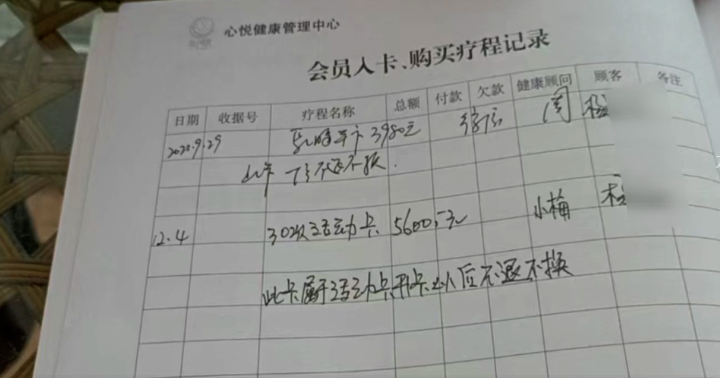 心悦健康管理中心
会员入卡、购买疗程记录
日期 收据号 疗程名称 总额 付款 欠款 健康顾问 顾客 备注
2020.9.29 年卡 3980元 周
不退不换.
12.4 30次活动卡 5600元 小梅
此卡属于活动卡开卡以后不退不换